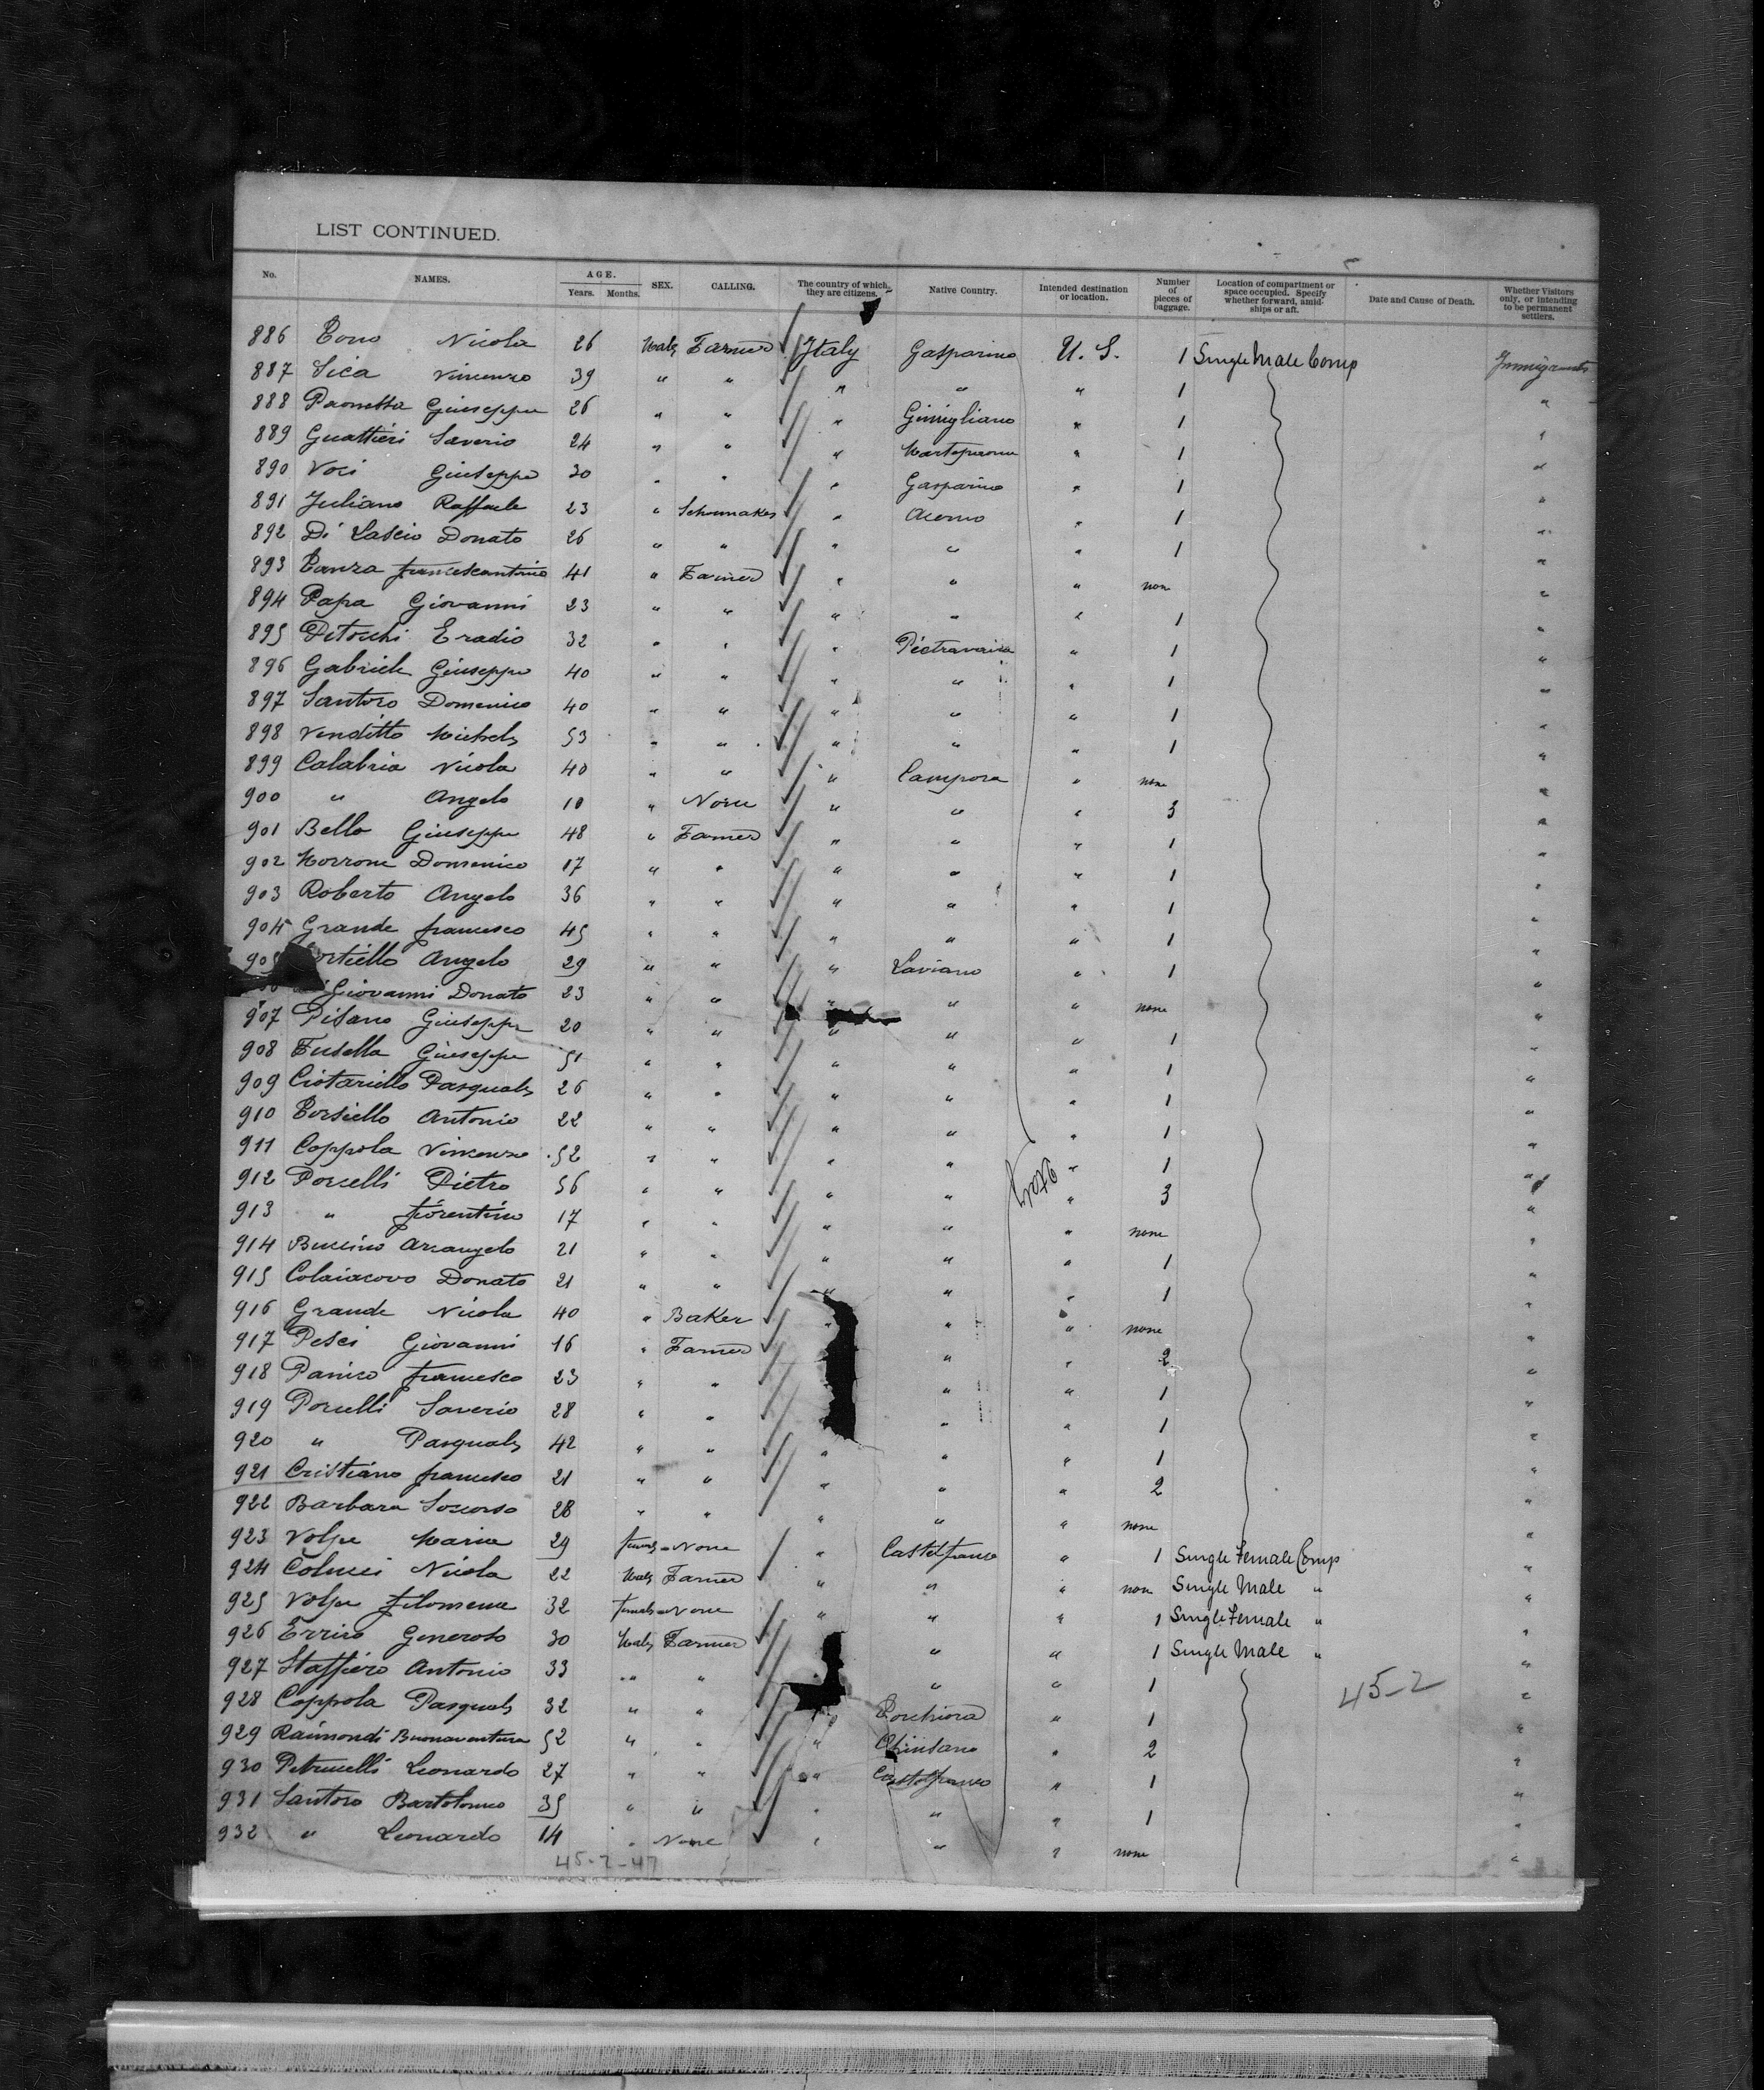 LIST CONTINUED.
No. NAMES. AGE. Years. Months. SEX. CALLING. The country of which they are citizens. Native Country. Intended destination or location. Number of pieces of baggage. Location of compartment or space occupied. Specify whether forward, amidships or aft. Date and Cause of Death. Whether Visitors only, or intending to be permanent settlers.
886 Nicola 26 Male Farmer Italy Gasparino U. S. 1 Single Male Comp Immigrants
887 Sica Vincenzo 39 " " " " " 1 "
888 Paonessa Giuseppe 26 " " " Gimigliano " 1 "
889 Gualtieri Saverio 24 " " " " 1 "
890 Voci Giuseppe 30 " " " Gasparino " 1 "
891 Juliano Raffaele 23 " Schumaker " Acerno " 1 "
892 Di Lascio Donato 26 " " " " " 1 "
893 Francescantonio 41 " Farmer " " " non "
894 Papa Giovanni 23 " " " " " 1 "
895 Pitocchi Eradio 32 " " " " 1 "
896 Gabriele Giuseppe 40 " " " " " 1 "
897 Santoro Domenico 40 " " " " " 1 "
898 Venditto Michele 53 " " " " " 1 "
899 Calabria Nicola 40 " " " Campora " none "
900 " Angelo 10 " None " " " 3 "
901 Bello Giuseppe 48 " Farmer " " " 1 "
902 Morrone Domenico 17 " " " " " 1 "
903 Roberto Angelo 36 " " " " " 1 "
904 Grande Francesco 45 " " " " " 1 "
905 Angelo 29 " " " Laviano " 1 "
Giovanni Donato 23 " " " " " none "
907 Pisano Giuseppe 20 " " " " " 1 "
908 Fusella Giuseppe 51 " " " " " 1 "
909 Ciotariello Pasquale 26 " " " " " 1 "
910 Torsiello Antonio 22 " " " " " 1 "
911 Coppola Vincenzo 52 " " " " " 1 "
912 Porcelli Pietro 56 " " " " " 3 "
913 " Fiorentino 17 " " " " " none "
914 Buccino Arcangelo 21 " " " " " 1 "
915 Colaiacovo Donato 21 " " " " " 1 "
916 Grande Nicola 40 " Baker " " " none "
917 Pesci Giovanni 16 " Farmer " " 2 "
918 Panico Francesco 23 " " " " 1 "
919 Porcelli Saverio 28 " " " " 1 "
920 " Pasquale 42 " " " " " 1 "
921 Cristiano Francesco 21 " " " " " 2 "
922 Barbara Soccorso 28 " " " " " none "
923 Volpe Maria 29 female None " Castelfranco " 1 Single Female Comp "
924 Colucci Nicola 22 Male Farmer " " " non Single Male " "
925 Volpe Filomena 32 female None " " " 1 Single Female " "
926 Errico Generoso 30 Male Farmer " " 1 Single Male " "
927 Staffiero Antonio 33 " " " " 1 "
928 Coppola Pasquale 32 " " " 1 45-2 "
929 Raimondi Buonaventura 52 " " " " 2 "
930 Petruccelli Leonardo 27 " " " Castelfranco " 1 "
931 Santoro Bartolomeo 35 " " " " " 1 "
932 " Leonardo 14 " None " " " none "
45-2-47